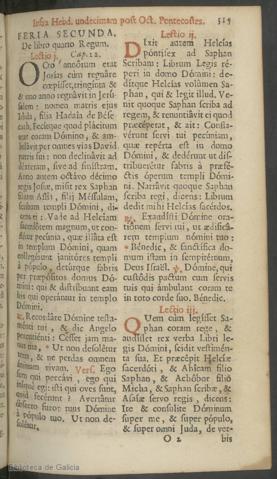 Infra Hebd. undecimam post Oct. Pentecostes.
FERIA SECUNDA.
De libro quarto Regum.
Lectio j. Cap. 22.
Octo annorum erat
Josias cùm regnáre
cœpísset, trigínta &
& uno anno regnávit in Jerú-
salem: nomen matris ejus
Idida, filia Hadaía de Bése-
cath. Fecítque quod plácitum
erat coram Dómino, & am-
bulávit per omnes vias David
patris sui: non declinávit ad
déxteram, sive ad sinístram.
Anno autem octávo décimo
regis Josíæ, misit rex Saphan
fílium Assía, fílii Méssulam,
scribam templi Dómini, di-
cens ei: Vade ad Helcíam
sacerdótem magnum, ut con-
flétur pecúnia, quæ illáta est
in templum Dómini, quam
collegérunt janitóres templi
à pópulo, detúrque fabris
per præpósitos domus Dó-
mini: qui & distríbuant eam
his qui operántur in templo
Dómini.
℟. Recordáre Dómine testa-
ménti tui, & dic Angelo
percutiénti: Cesset jam ma-
nus tua, * Ut non desolétur
terra, & ne perdas omnem
ánimam vivam. Vers. Ego
sum qui peccávi, ego qui
iníquè egi: isti qui oves sunt,
quid fecérunt? Avertátur
óbsecro furor tuus Dómine
à pópulo tuo. Ut non de-
solétur.
529
Lectio ij.
Dixit autem Helcías
póntifex ad Saphan
Scribam: Librum Legis ré-
peri in domo Dómini: de-
dítque Helcías volúmen Sa-
phan, qui & legit illud. Ve-
nit quoque Saphan scriba ad
regem, & renuntiávit ei quod
præcéperat, & ait: Confla-
vérunt servi tui pecúniam,
quæ repérta est in domo
Dómini, & dedérunt ut dis-
tribuerétur fabris à præfé-
ctis óperum templi Dómi-
ni. Narrávit quoque Saphan
scriba regi, dicens: Librum
dedit mihi Helcías sacérdos.
℟. Exaudísti Dómine ora-
tiónem servi tui, ut ædificá-
rem templum nómini tuo:
* Bénedic, & sanctífica do-
mum istam in sempitérnum,
Deus Israël. ℣. Dómine, qui
custódis pactum cum servis
tuis qui ámbulant coram te
in toto corde suo. Bénedic.
Lectio iij.
Quem cùm legísset Sa-
phan coram rege, &
audísset rex verba Libri le-
gis Dómini, scidit vestimén-
ta sua. Et præcépit Helcíæ
sacerdóti, & Ahícam fílio
Saphan, & Achóbor fílio
Micha, & Saphan scribæ, &
Asaíæ servo regis, dicens:
Ite & consúlite Dóminum
super me, & super pópulo,
& super omni Juda, de ver-
O 2 bis
Biblioteca de Galicia